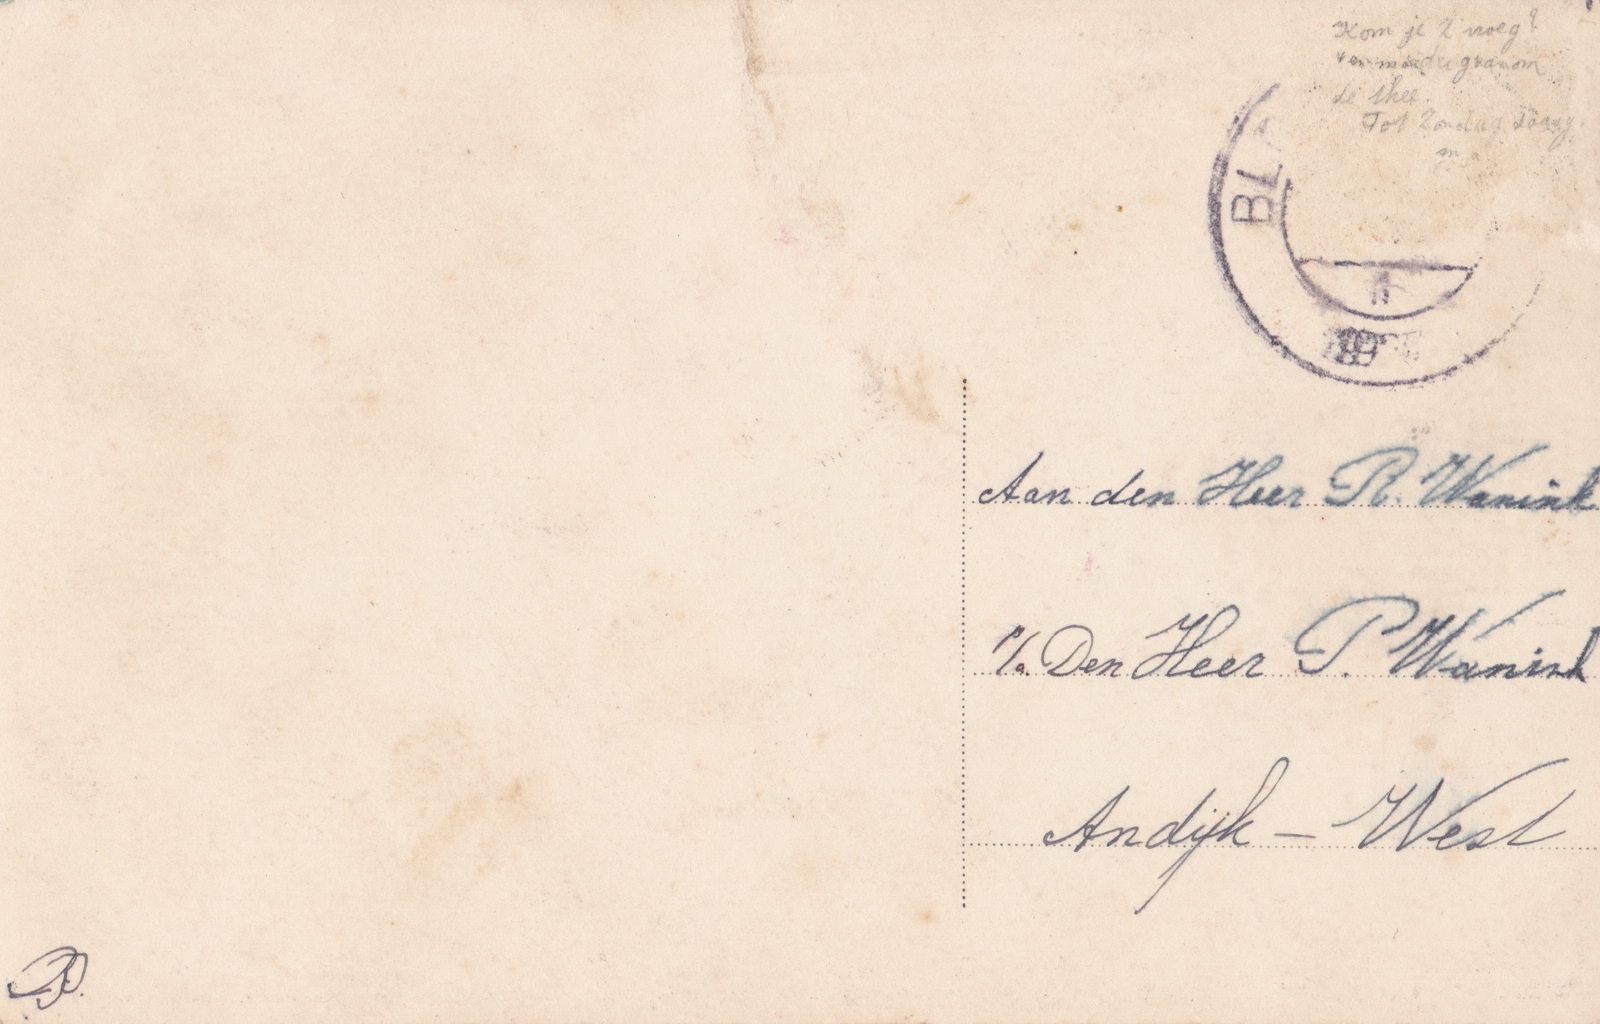 Kom je 2 vroeg?
de thee.
Tot Zondag
BL
Aan den Heer R. Wanink
P/a. Den Heer P. Wanink
Andijk – West
B.